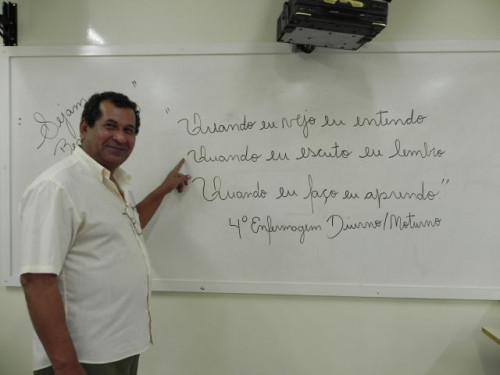 " Sejam
"
" Quando eu vejo eu entendo
Quando eu escuto eu lembro
Quando eu faço eu aprendo"
4º Enfermagem Diurno/Noturno